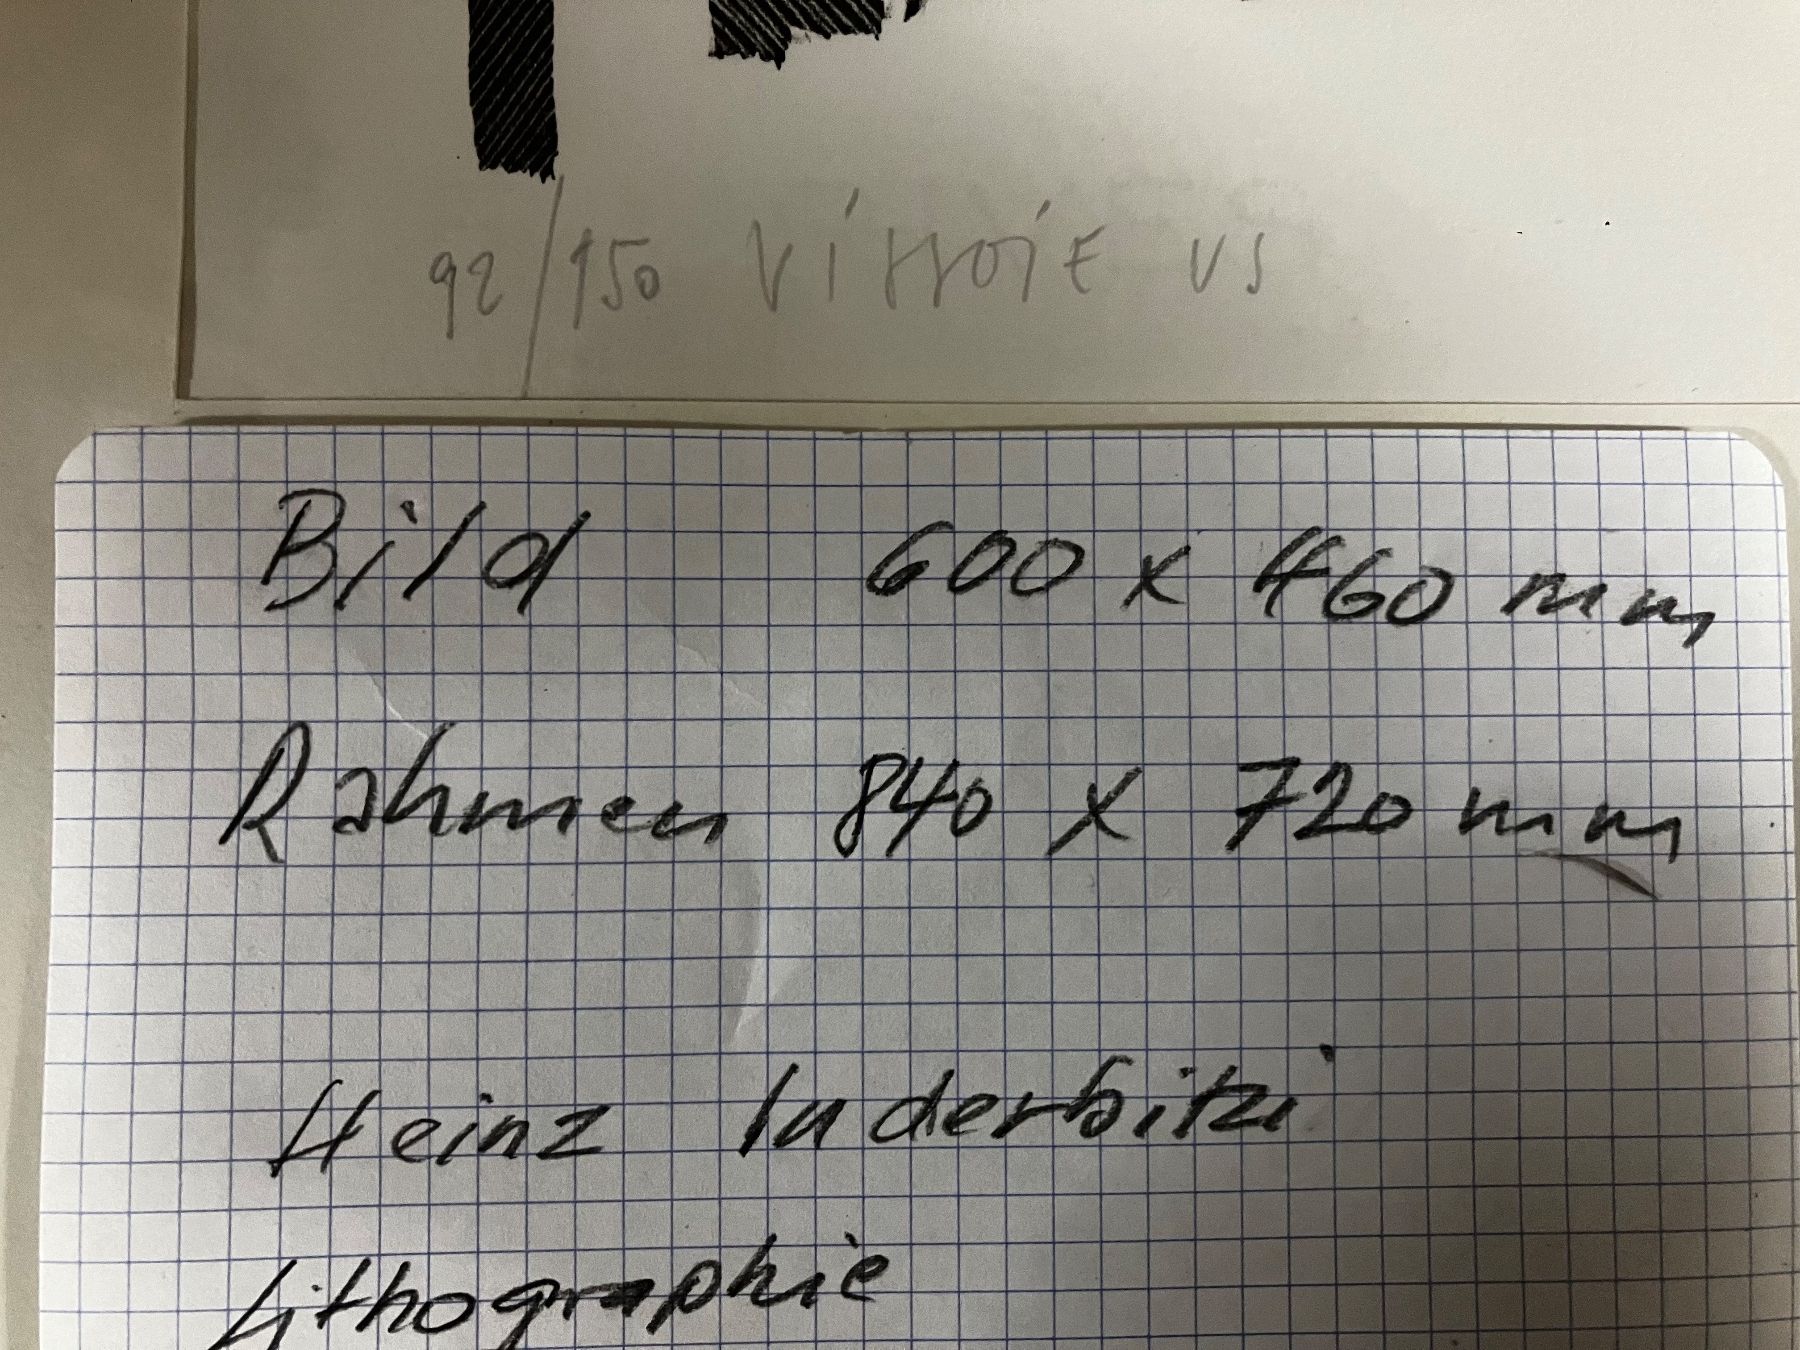 92/150 US
Bild 600 x 460 mm
Rahmen 840 x 720 mm
Heinz Inderbitzi
Lithographie